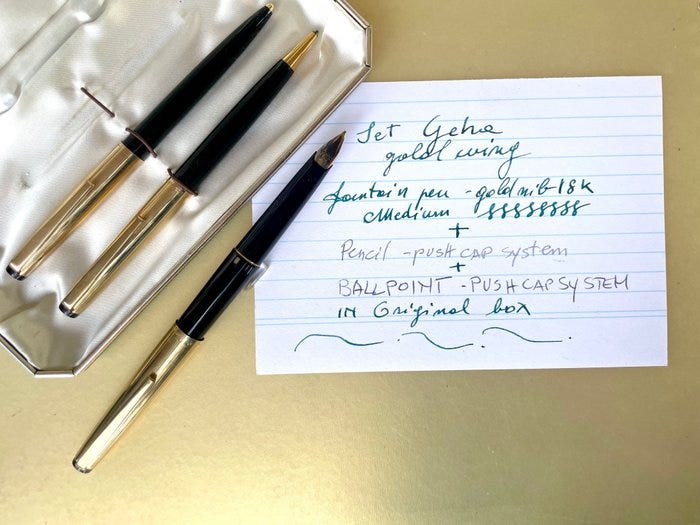 Set Geha
gold wing
fountain pen - gold nib 18K
Medium 8888888
+
Pencil - PUSH CAP System
+
BALLPOINT - PUSH CAP SYSTEM
IN Original box